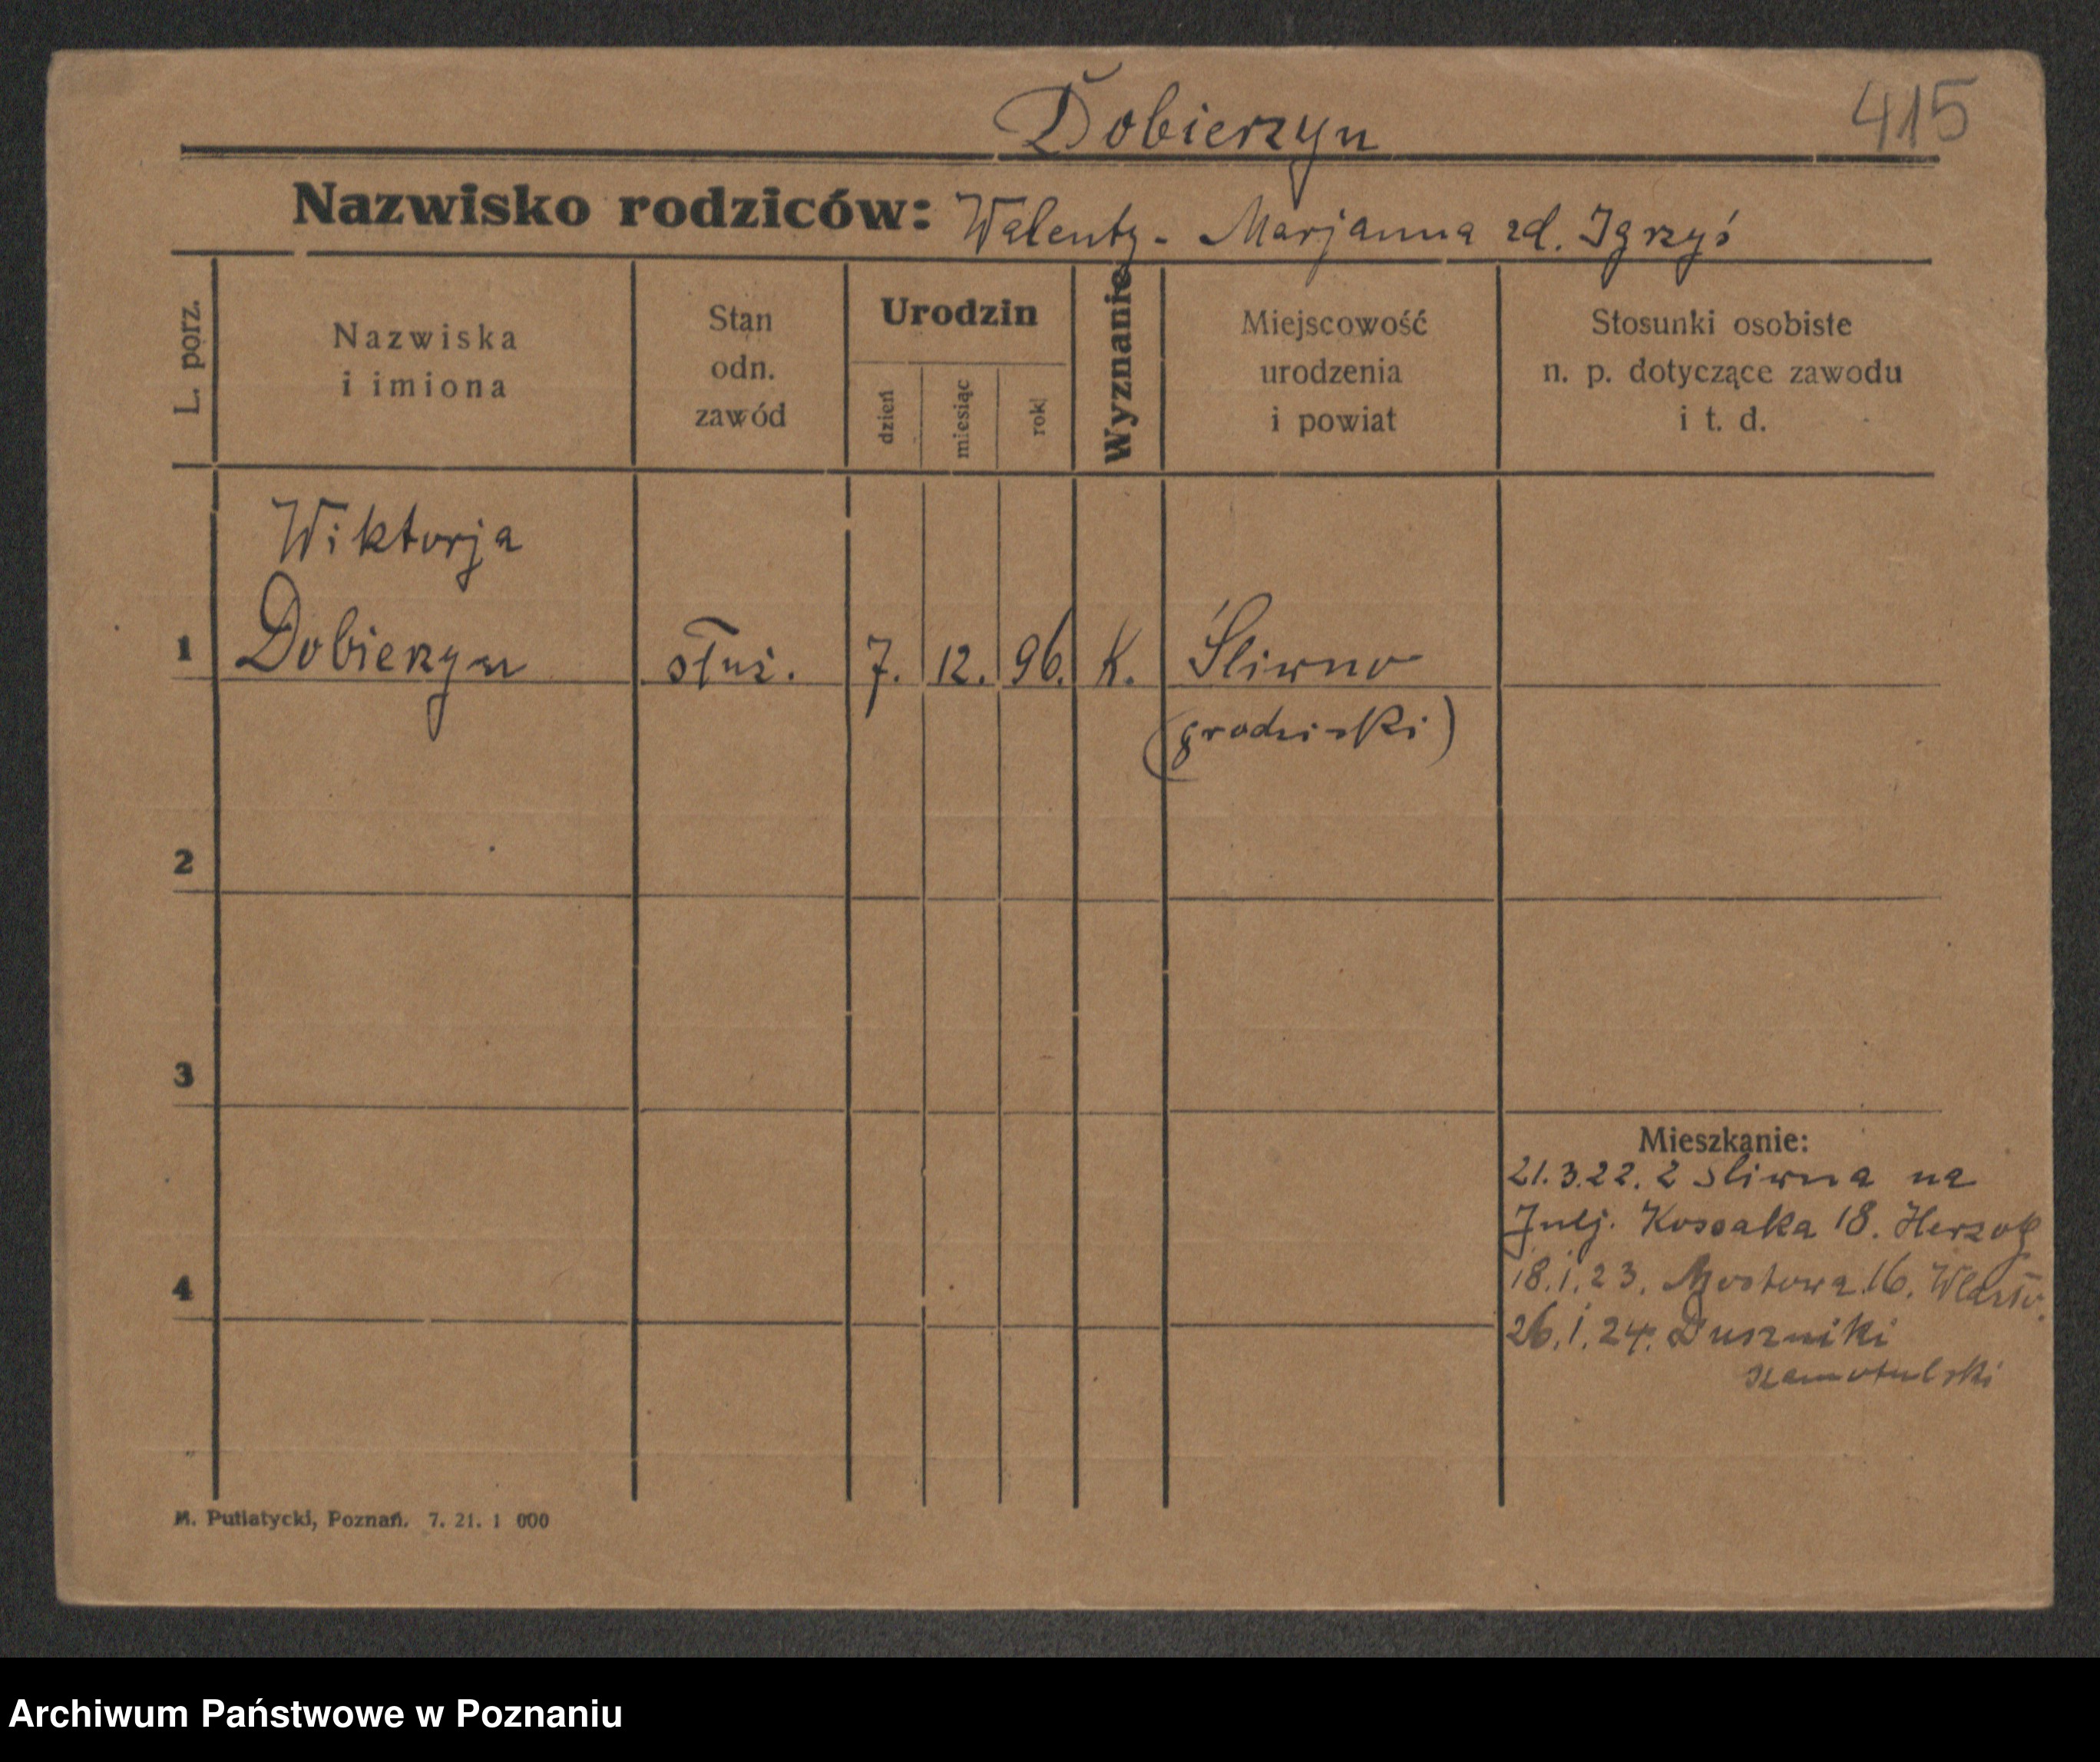 Dobierzyn
415
Nazwisko rodziców: Walenty - Marjanna zd. Igrzyś
L. porz.
Nazwiska
i imiona
Stan
odn.
zawód
Urodzin
dzień
miesiąc
rok
Wyznanie
Miejscowość
urodzenia
i powiat
Stosunki osobiste
n. p. dotyczące zawodu
i t. d.
Wiktorja
1 Dobierzyn służ. 7. 12. 96. K. Śliwno
(grodziski)
2
3
Mieszkanie:
21.3.22. z Sliwna na
Julj. Kossaka 18. Herzog
18.1.23. Mostowa 16.
4
26.1.24. Duszniki
szamotulski
M. Putiatycki, Poznań. 7. 21. 1 000
Archiwum Państwowe w Poznaniu